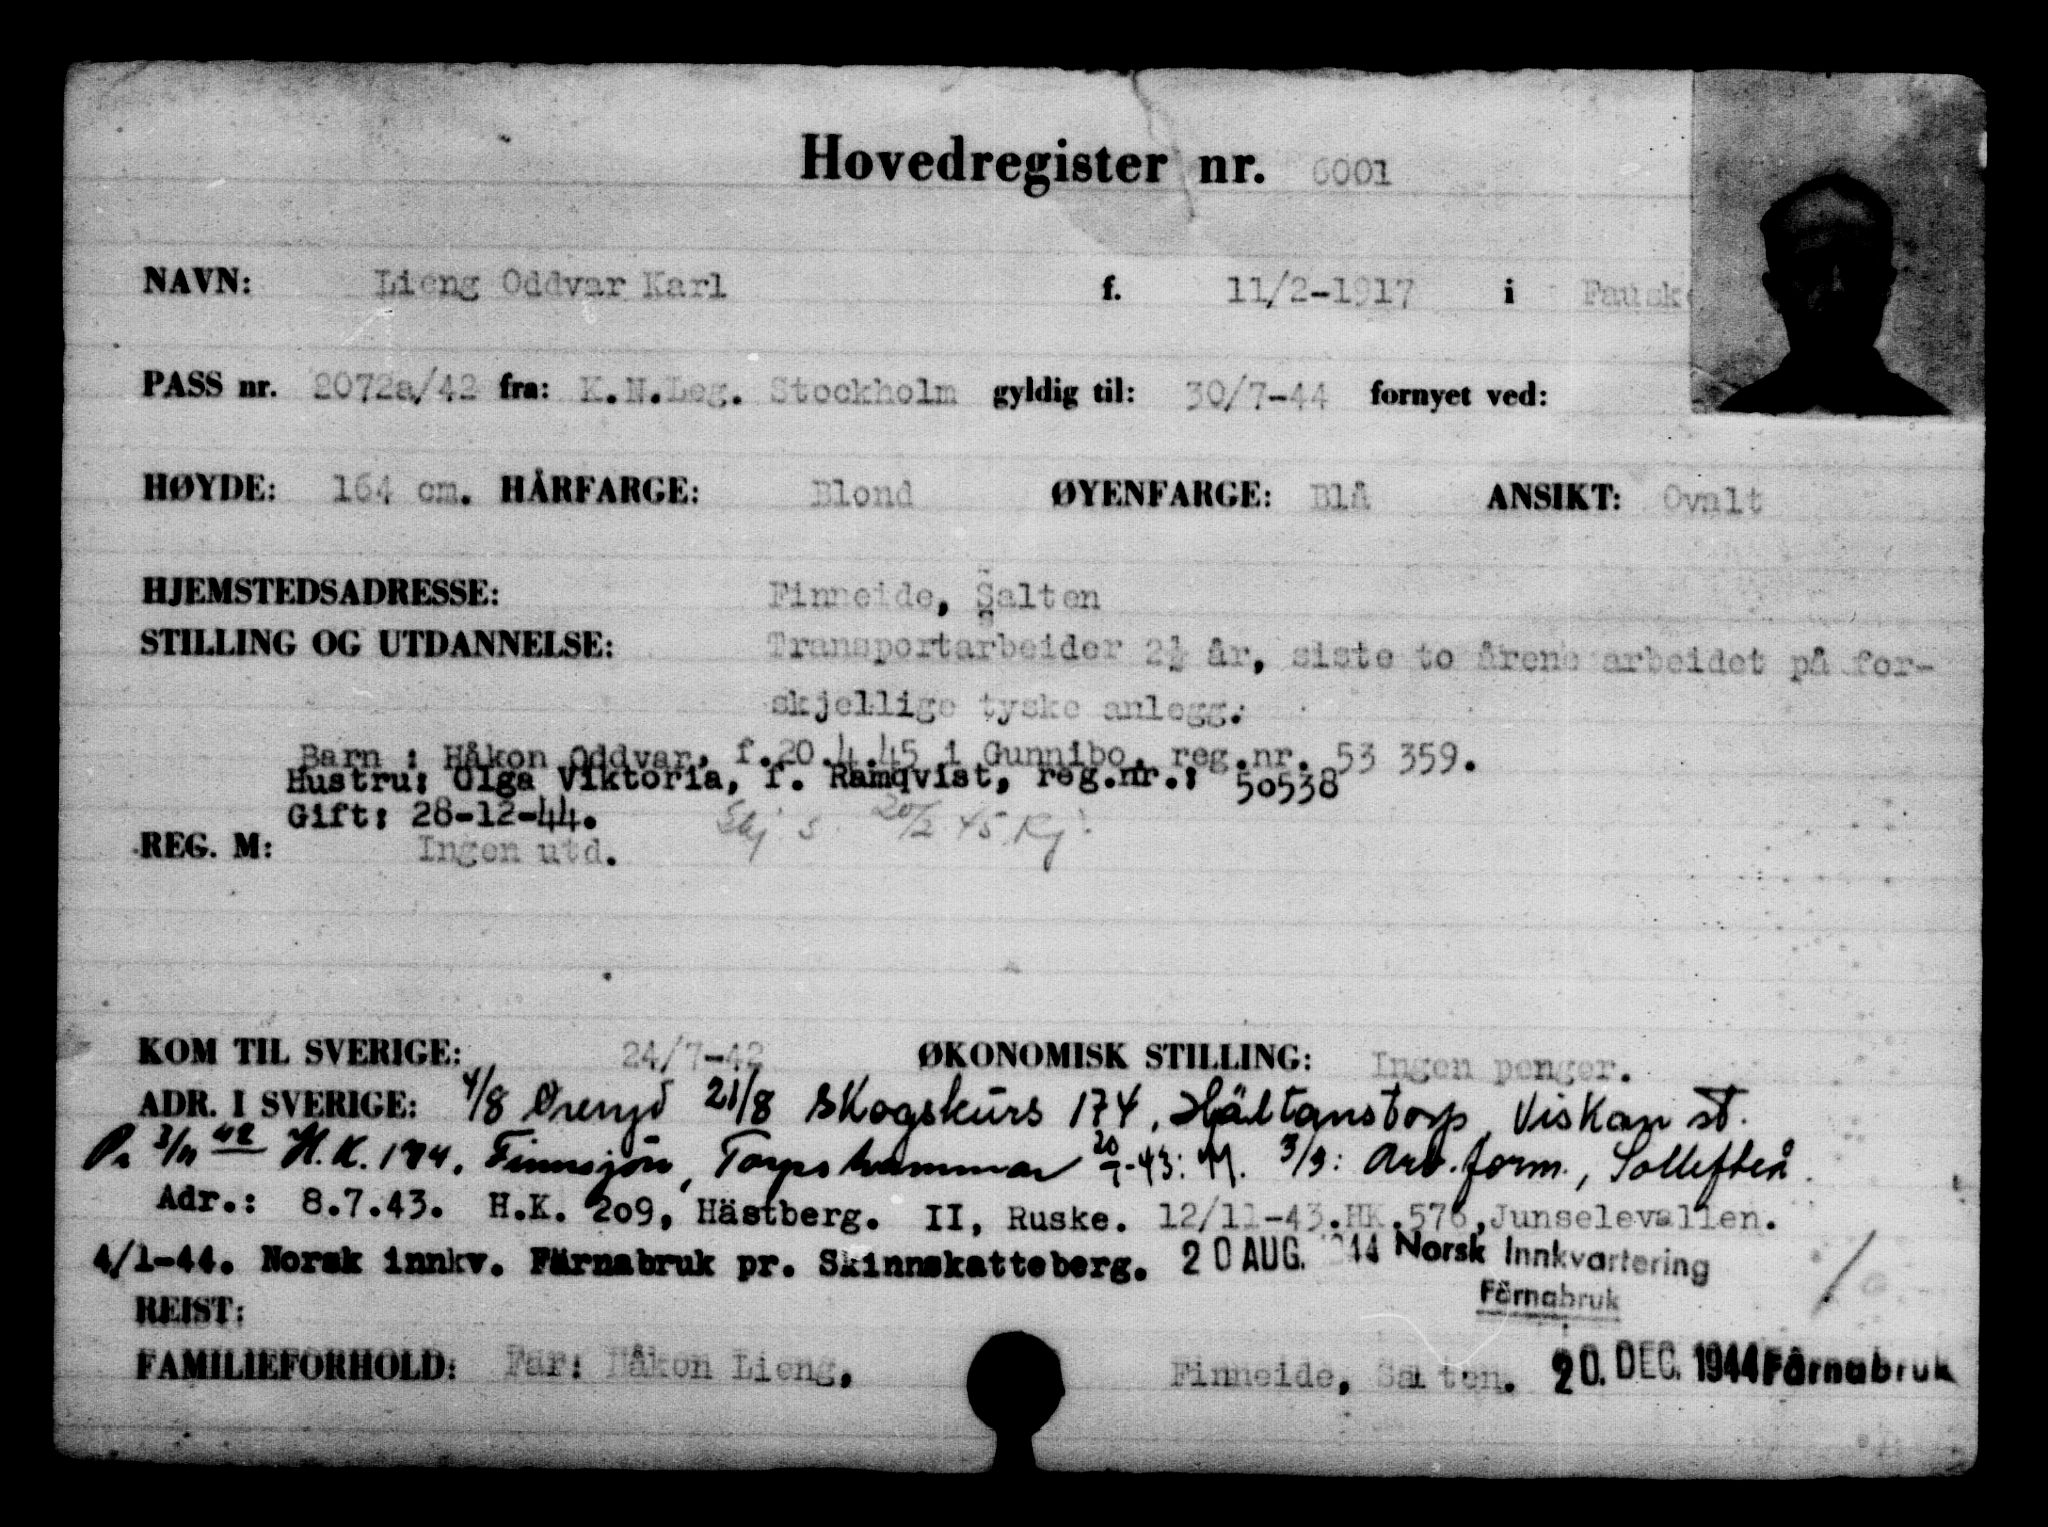 Hovedregister nr. 6001
NAVN: Lieng Oddvar Karl f. 11/2-1917 i Fauske
PASS nr. 2072a/42 fra: K.N.Leg. Stockholm gyldig til: 30/7-44 fornyet ved:
HØYDE: 164 cm. HÅRFARGE: Blond ØYENFARGE: Blå ANSIKT: Ovalt
HJEMSTEDSADRESSE: Finneide, Salten
STILLING OG UTDANNELSE: Transportarbeider 2½ år, siste to årene arbeidet på for-
skjellige tyske anlegg.
Barn : Håkon Oddvar, f.20.4.45 i Gunnibo, reg.nr. 53 359.
Hustru: Olga Viktoria, f. Ramqvist, reg.nr.: 50538
Gift: 28-12-44. 20/2 45
REG. M: Ingen utd.
KOM TIL SVERIGE: 24/7-42 ØKONOMISK STILLING: Ingen penger.
ADR. I SVERIGE: 4/8 Øreryd 21/8 Skogskurs 174, Hältanstorp, Viskan st.
3/11 42 H.K. 174, Finnsjön, Torpshammar 20/7-43: M. 3/3: Arb.form., Sollefteå.
Adr.: 8.7.43. H.K. 209, Hästberg. II, Ruske. 12/11-43.HK.576,Junselevallen.
4/1-44. Norsk innkv. Färnabruk pr. Skinnskatteberg. 20 AUG. 1944 Norsk Innkvartering
Färnabruk
REIST:
FAMILIEFORHOLD: Far: Håkon Lieng, Finneide, Salten. 20. DEC. 1944 Färnabruk